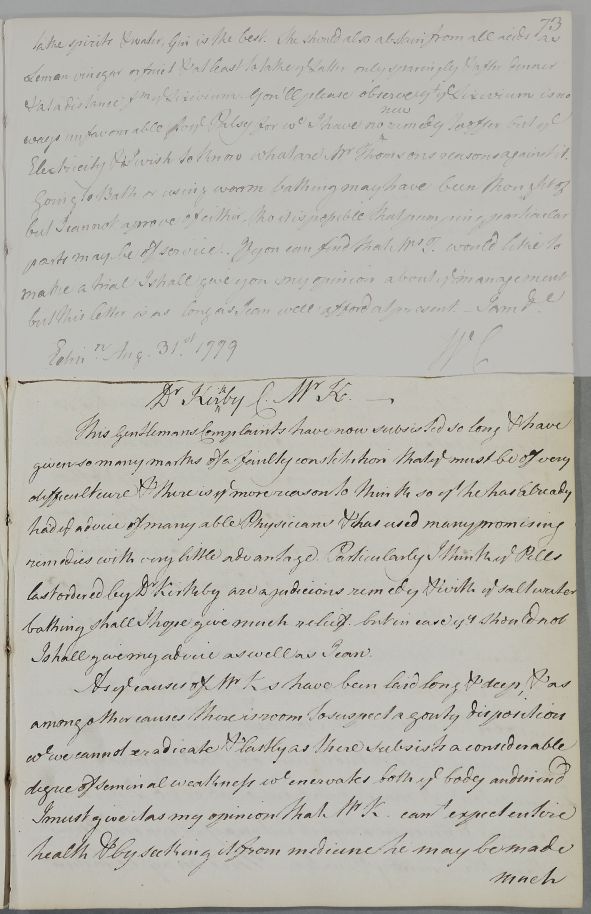 73
take spirits & water, Gin is the best. She should also abstain from all acids as
Lemon vinegar or fruit & at least to take ye latter only sparingly & after dinner
& at a distance from ye Lixivium. You'll please observe yt ye Lixivium is no
new
ways unfavourable for ye Palsy for wc I have no remedy to offer but yt
Electricity & I wish to know what are Mr Thomsons reasons against it.
Going to Bath or using warm bathing may have been thought of
but I cannot aprove of either, tho it is possible that pumping particular
parts may be of service. If you can find that Mrs would like to
make a trial I shall give you my opinion about ye management
but this letter is as long as I can well afford at present. I am &c
Edinr Aug. 31st 1779
W C
Dr Kirby C. Mr K.
This Gentlemans Complaints have now subsisted so long & have
given so many marks of a faulty constitution that ye must be of very
difficult cure & there is ye more reason to think so yt he has already
had ye advice of many able Physicians & has used many promising
remedies with very little advantage. Particularly I think ye Pills
last ordered by Dr Kirkby are a judicious remedy & with ye salt water
bathing shall I hope give much relief but in case yt should not
I shall give my advice as well as I can.
As ye causes of Mr K s have been laid long & deep, & as
among other causes there is room to suspect a gouty disposition
wc we cannot eradicate & lastly as there subsists a considerable
degree of seminal weakness wc enervates both ye body and mind
I must give it as my opinion that Mr K. cant expect entire
health & by seeking it from medicine he may be made
much